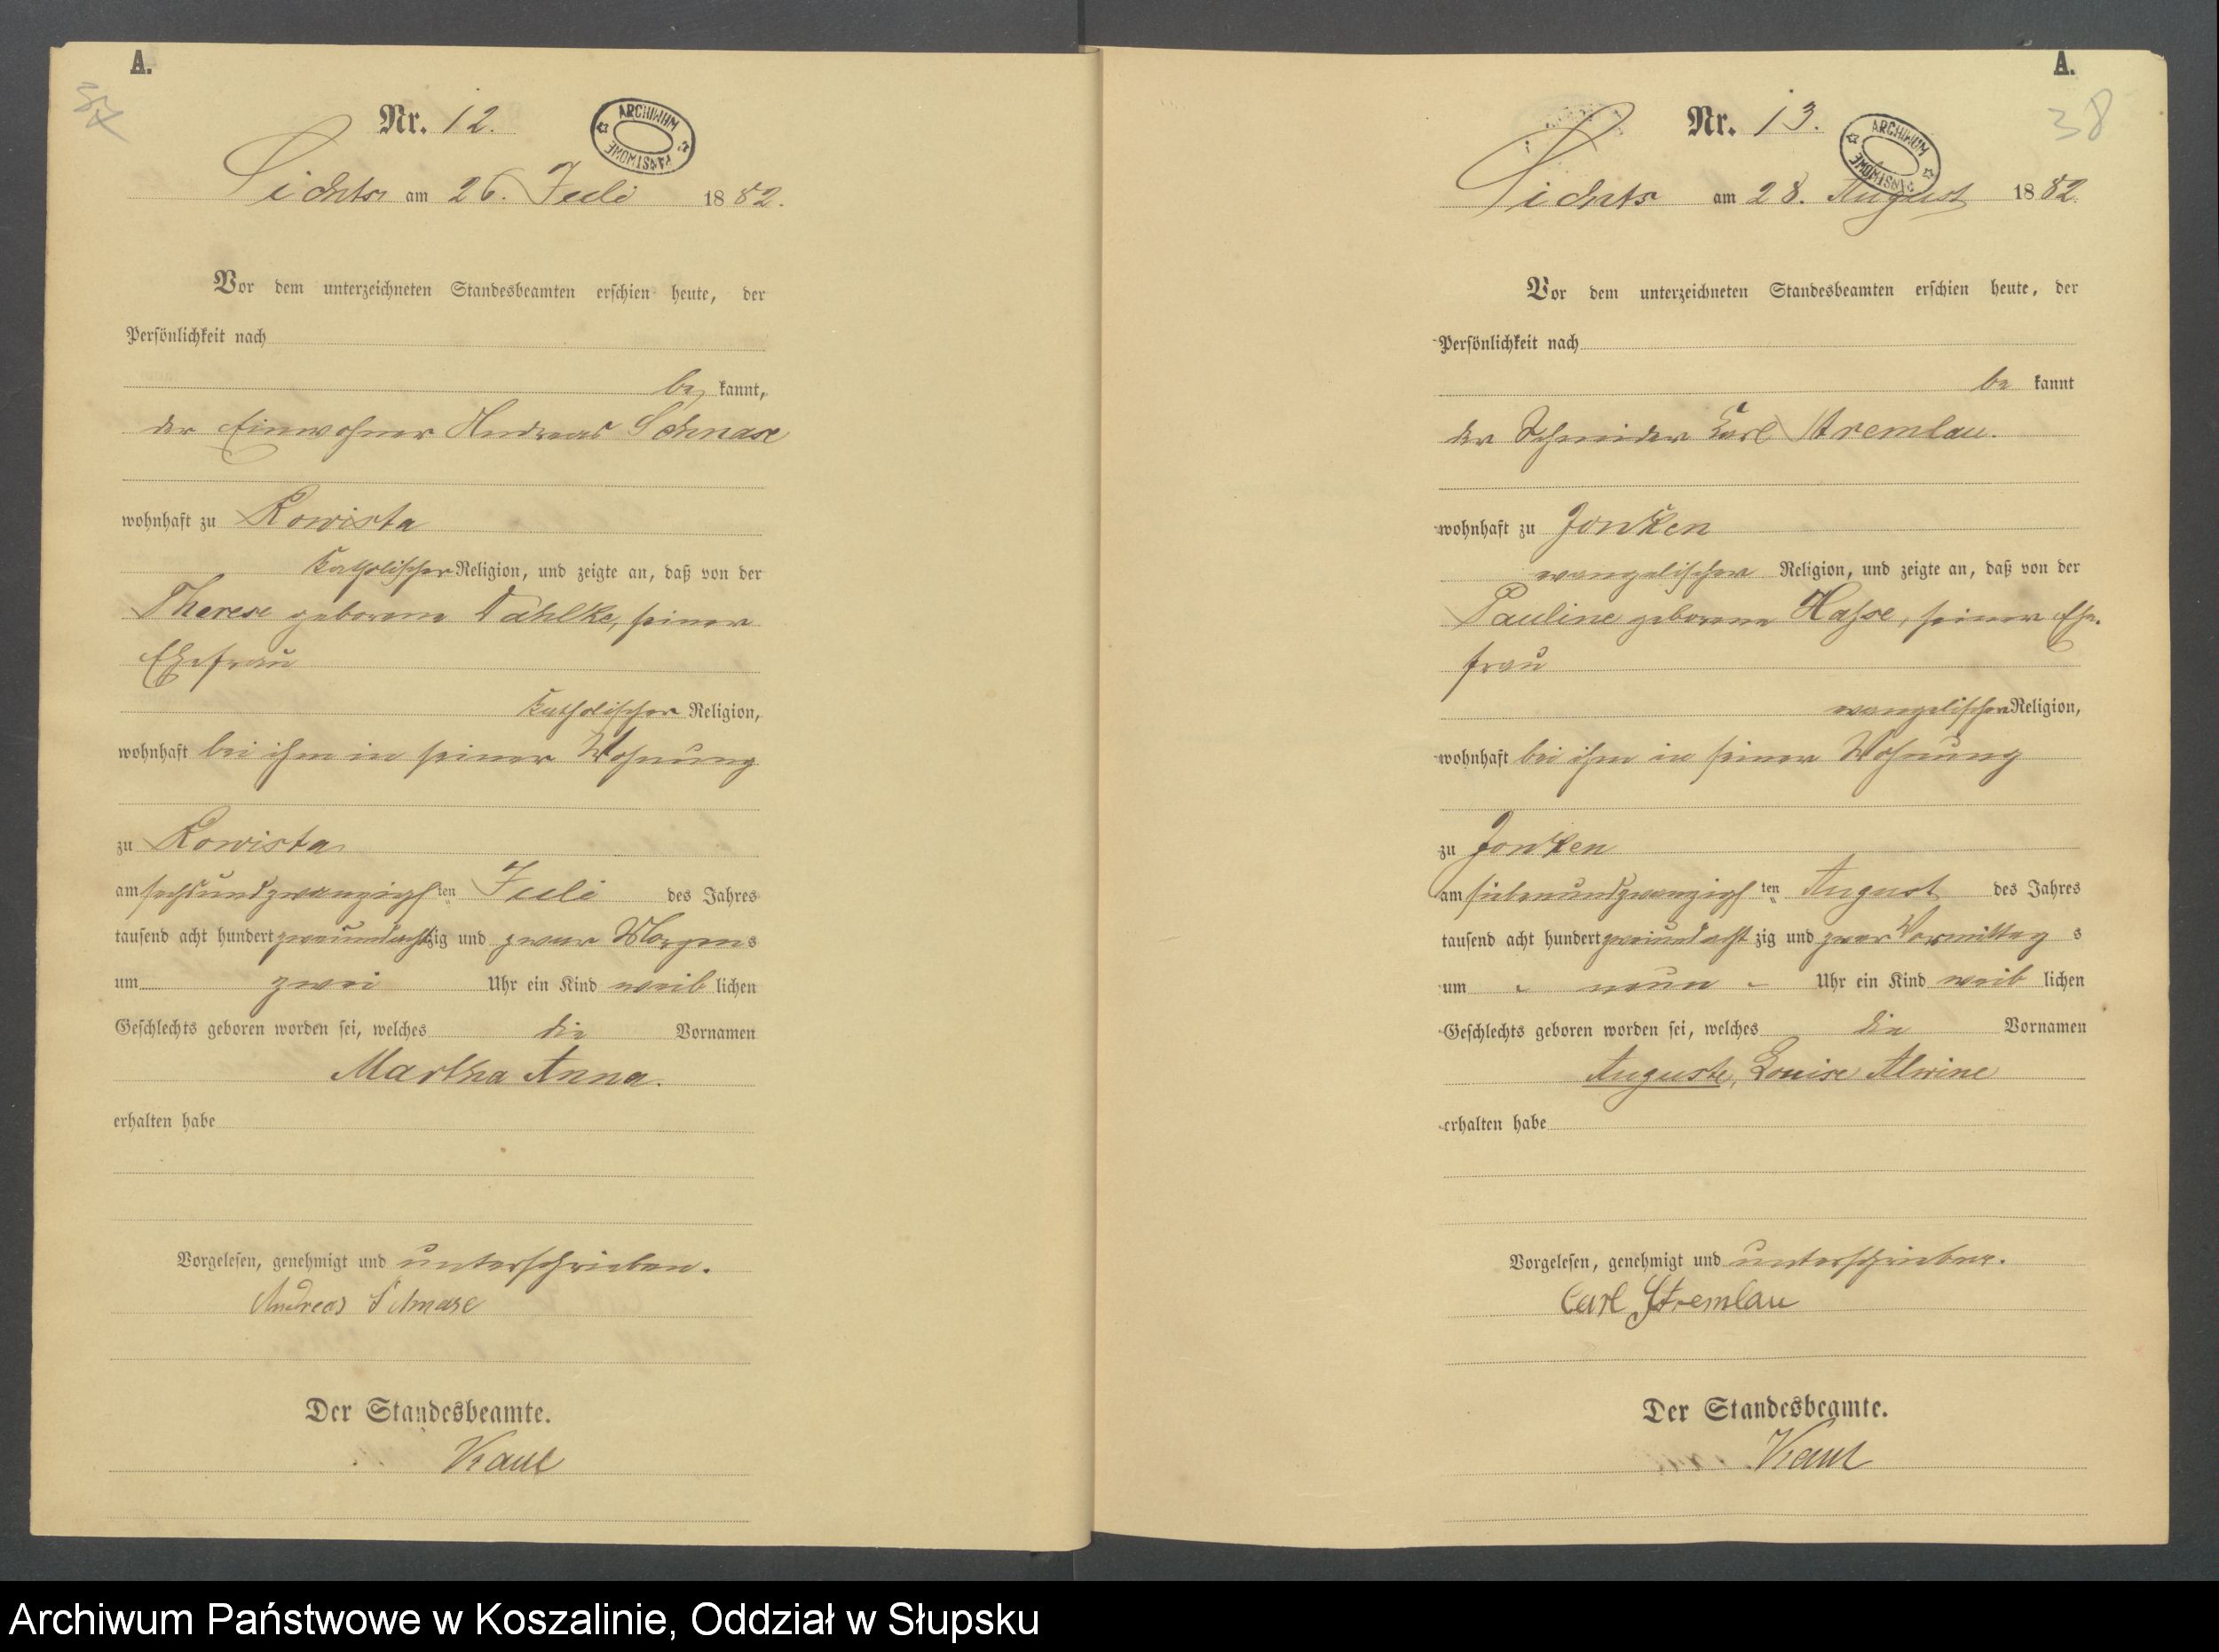 A.
37
Nr. 12.
ARCHIWUM PAŃSTWOWE
Lichts am 26. Juli 1882.
Vor dem unterzeichneten Standesbeamten erschien heute, der
Persönlichkeit nach
be kannt,
der Einwohner Andreas Schnase
wohnhaft zu Kowista
katholischer Religion, und zeigte an, daß von der
Therese geborene Dahlke, seiner
Ehefrau
katholischer Religion,
wohnhaft bei ihm in seiner Wohnung
zu Kowista
am sechsundzwanzigsten Juli des Jahres
tausend acht hundert zweiundachtzig und zwar Morgens
um zwei Uhr ein Kind weiblichen
Geschlechts geboren worden sei, welches die Vornamen
Martha Anna.
erhalten habe
Vorgelesen, genehmigt und unterschrieben.
Andreas Schnase
Der Standesbeamte.
A.
38
Nr. 13.
ARCHIWUM PAŃSTWOWE
am 28. August 1882.
Vor dem unterzeichneten Standesbeamten erschien heute, der
Persönlichkeit nach
be kannt
der Schneider Carl Stremlau.
wohnhaft zu Jonken
evangelischer Religion, und zeigte an, daß von der
Pauline geborene Hasse, seiner Ehe-
frau
evangelischer Religion,
wohnhaft bei ihm in seiner Wohnung
zu Jonken
am siebenundzwanzigsten August des Jahres
tausend acht hundert zweiundachtzig und zwar Vormittags
um neun Uhr ein Kind weiblichen
Geschlechts geboren worden sei, welches die Vornamen
Auguste, Louise Alwine
erhalten habe
Vorgelesen, genehmigt und unterschrieben.
Carl Stremlau
Der Standesbeamte.
Archiwum Państwowe w Koszalinie, Oddział w Słupsku